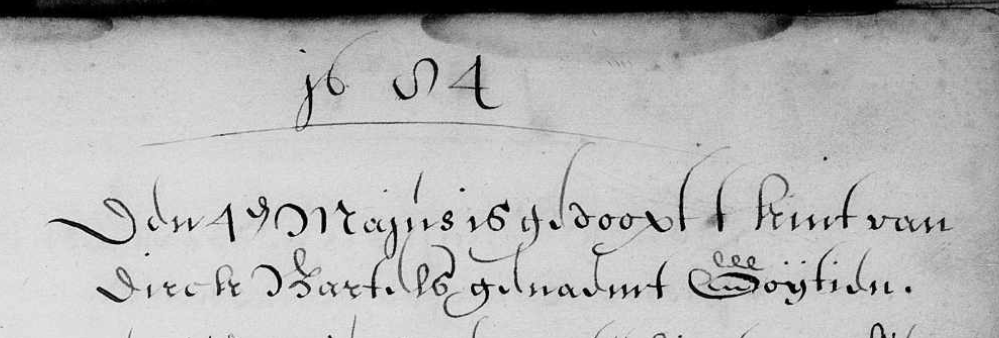 1684
Den 4e Majus is gedooptt t kint van
Dirck Bartels genaemt Goijtien.